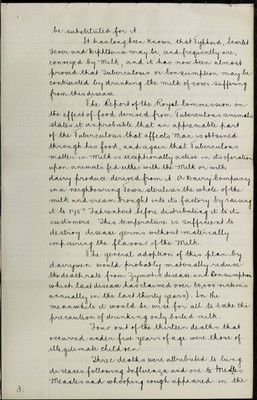 be substituted for it.
It has long been known that Typhoid, Scarlet
Fever and Diphtheria may be, and frequently are,
conveyed by Milk, and it has now been almost
proved that Tuberculosis or Consumption may be
contracted by drinking the milk of cows suffering
from this disease.
The Report of the Royal Commission on
the effect of food derived from Tuberculous animals
states it as probable that an appreciable part
of the Tuberculosis that affects Man is obtained
through his food, and again that Tuberculous
matter in Milk is exceptionally active in its operation
upon animals fed either with the Milk or with
dairy produce derived from it. A Dairy Company
in a neighbouring Town, sterilises the whole of the
milk and cream brought into its factory by raising
it to 175° Fahrenheit before distributing it to its
customers. This temperature is sufficient to
destroy disease germs without materially
impairing the flavour of the Milk.
The general adoption of this plan by
dairymen would probably materially reduce
the death rate from Zymotic disease and Consumption
which last disease has claimed over victims
annually in the last thirty years). In the
meanwhile it would be wise for all to take the
precaution of drinking only boiled milk.
Four out of the thirteen deaths that
occurred under five years of age were those of
illegitimate children.
Three deaths were attributed to lung
diseases following Influenza and one to
Measles and whooping cough appeared in the
3.